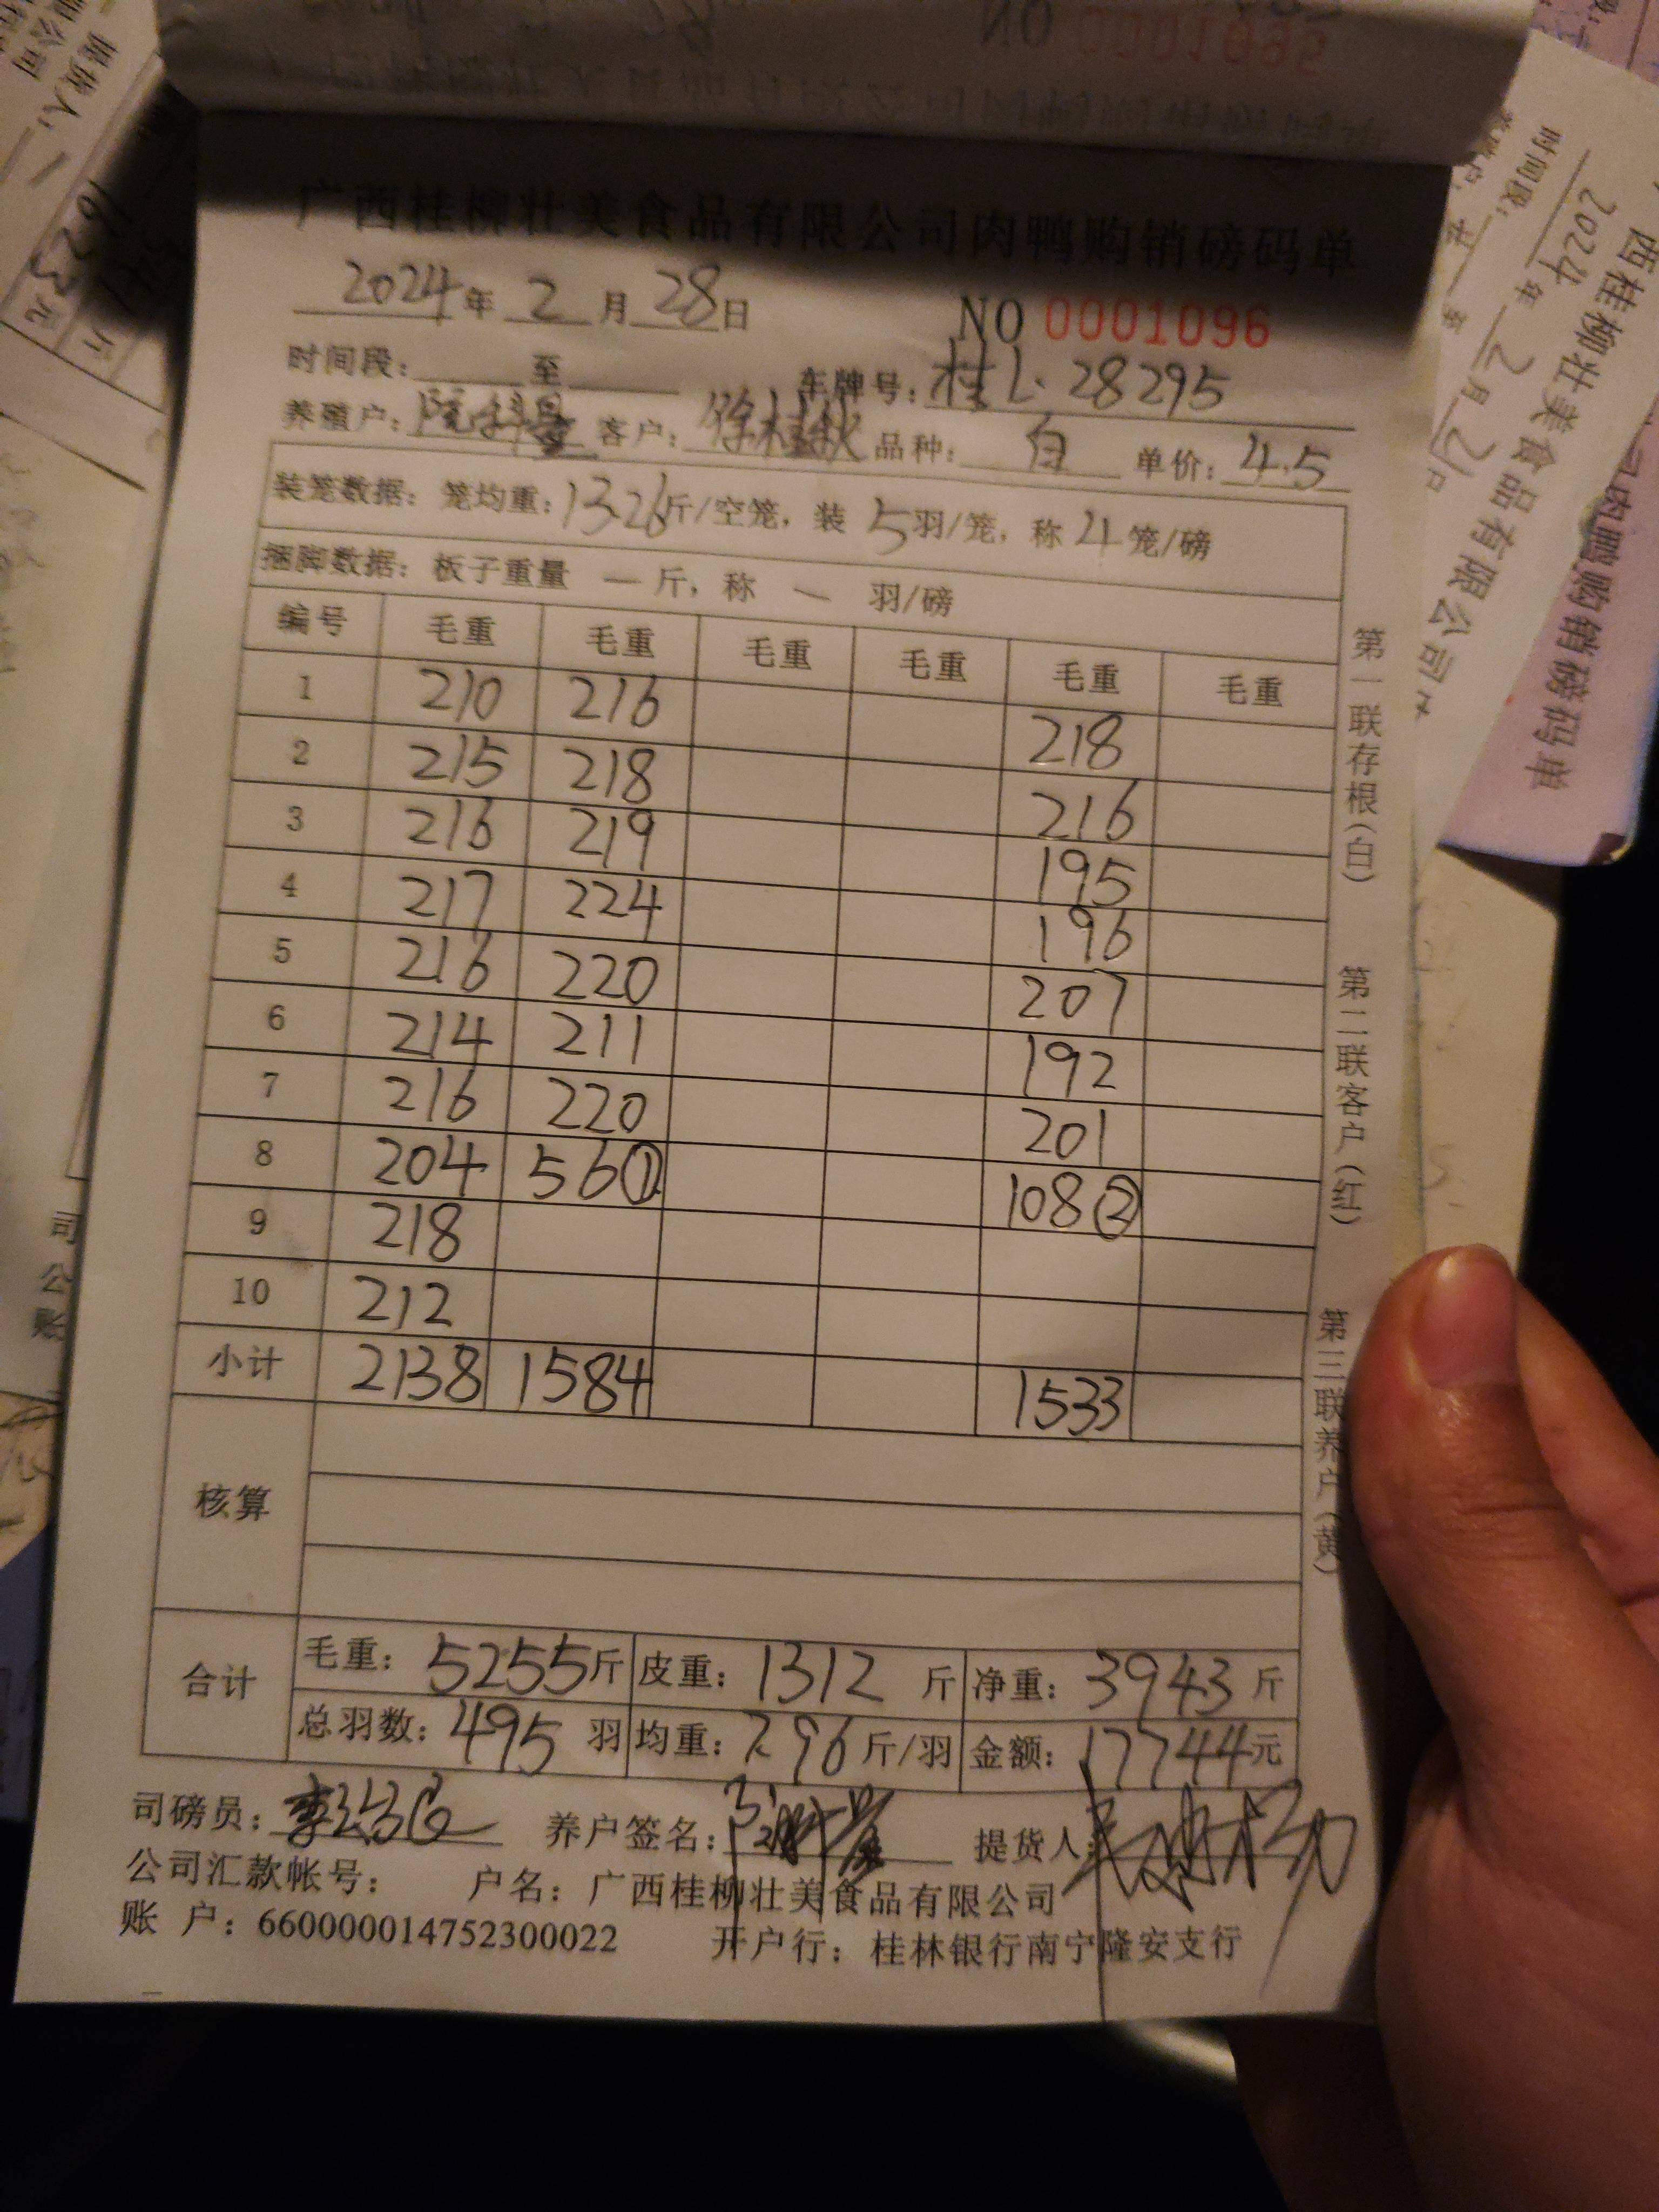 广西桂柳壮美食品有限公司肉鸭购销磅码单
2024年 2 月 28 日 NO 0001096
时间段: 至 车牌号: 桂L·28295
养殖户: 客户: 徐桂秋 品种: 白 单价: 4.5
装笼数据: 笼均重: 13.26斤/空笼, 装 5 羽/笼, 称 4 笼/磅
捆脚数据: 板子重量 一 斤, 称 一 羽/磅
编号 毛重 毛重 毛重 毛重 毛重 毛重
1 210 216 218
2 215 218 216
3 216 219 195
4 217 224 196
5 216 220 207
6 214 211 192
7 216 220 201
8 204 56① 108②
9 218
10 212
小计 2138 1584 1533
核算
合计 毛重: 5255斤 皮重: 1312 斤 净重: 3943 斤
总羽数: 495 羽 均重: 7.96 斤/羽 金额: 17744元
司磅员: 养户签名: 提货人:
公司汇款帐号: 户名: 广西桂柳壮美食品有限公司
账 户: 660000014752300022 开户行: 桂林银行南宁隆安支行
第一联存根(白) 第二联客户(红) 第三联养户(黄)
NO 0001095
提货人:
1623元
西桂柳壮美食品有限公司
2024年 2月
时间段:
肉鸭购销磅码单